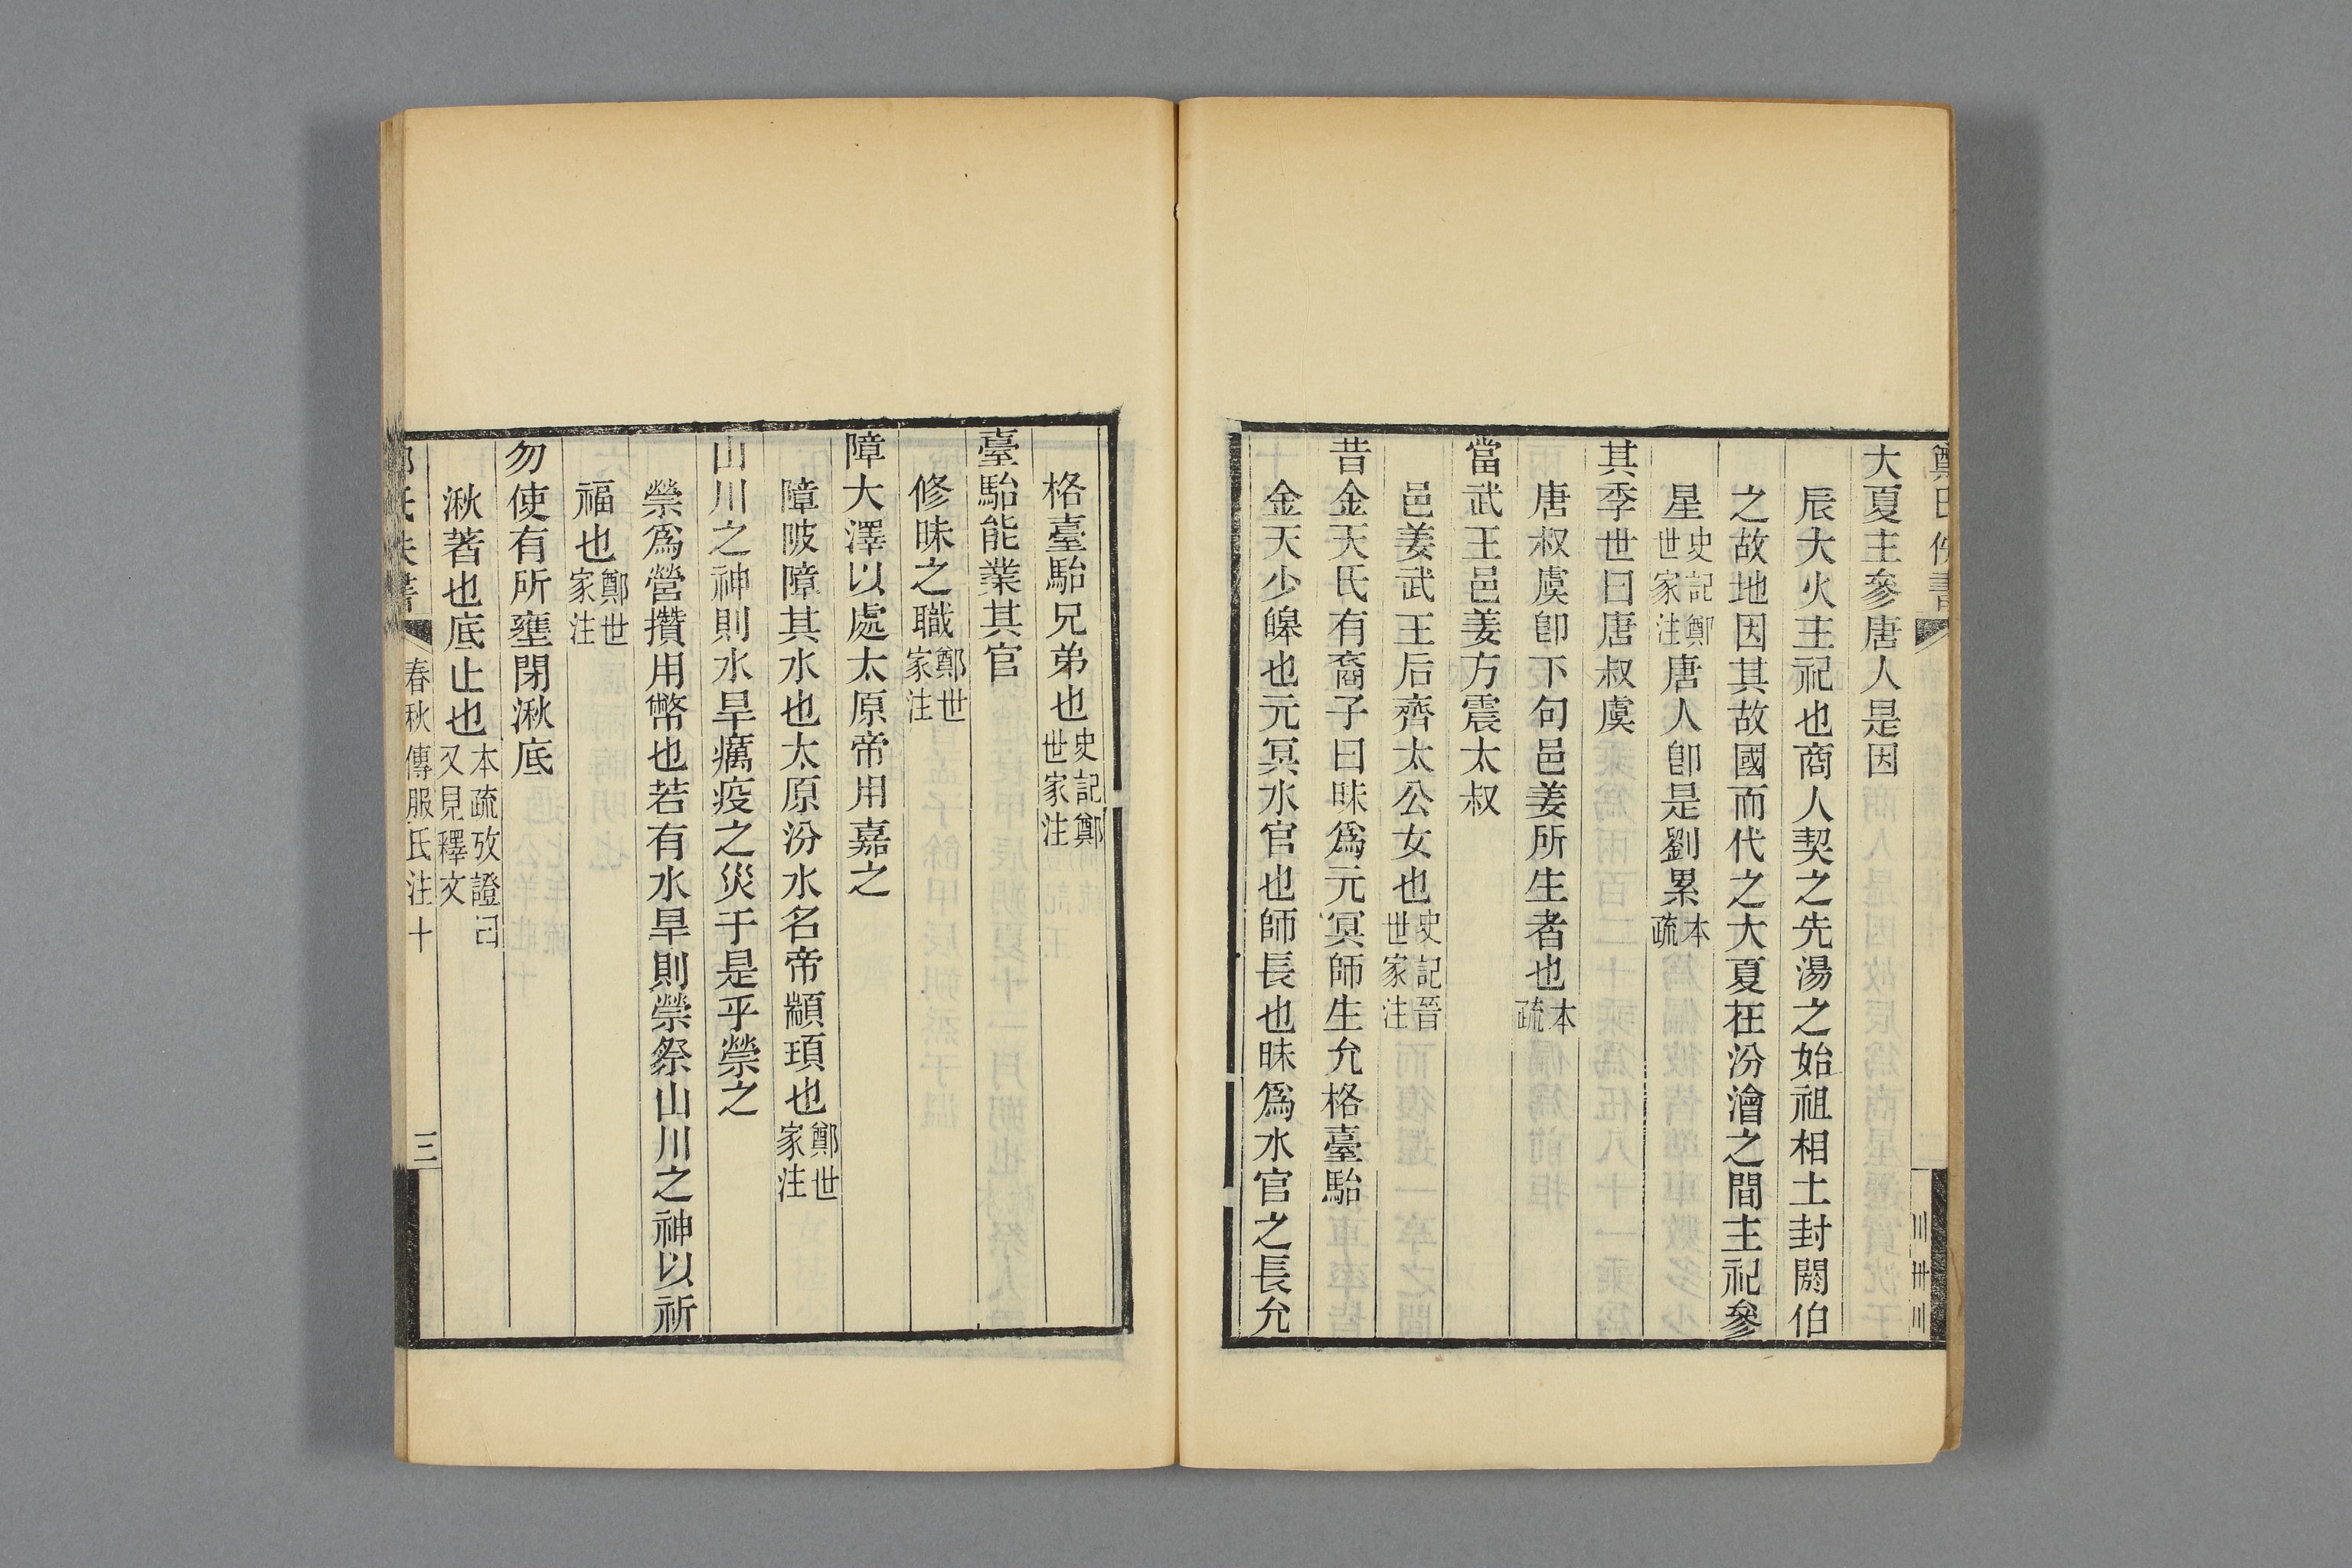 大夏主參唐人是因
辰大火主祀也商人契之先湯之始祖相土封閼伯
之故地因其故國而代之大夏在汾澮之間主祀參
星史記鄭世家注唐人卽是劉累本疏
其季世曰唐叔虞
唐叔虞卽下句邑姜所生者也本疏
當武王邑姜方震太叔
邑姜武王后齊太公女也史記晉世家注
昔金天氏有裔子曰昧爲元冥師生允格臺駘
金天少皞也元冥水官也師長也昧爲水官之長允
格臺駘兄弟也史記鄭世家注
臺駘能業其官
修昧之職鄭世家注
障大澤以處太原帝用嘉之
障陂障其水也太原汾水名帝顓頊也鄭世家注
山川之神則水旱癘疫之災于是乎禜之
禜爲營攢用幣也若有水旱則禜祭山川之神以祈
福也鄭世家注
勿使有所壅閉湫底
湫著也底止也本疏攷證曰又見釋文
氏佚書 春秋傳服氏注十 三